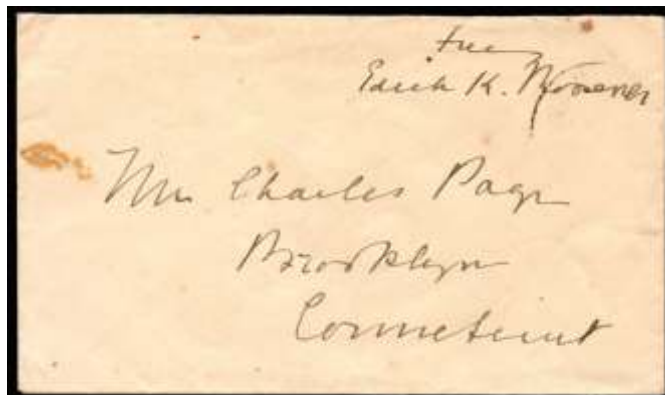 free
Edith K. Roosevelt
Mr Charles Page
Brooklyn
Connecticut